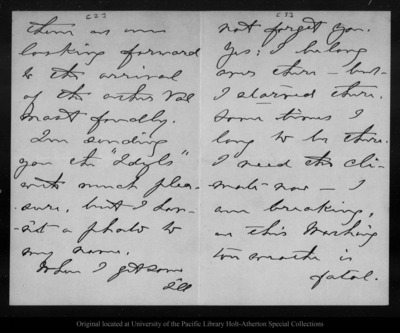 [22]
them as ever
looking forward
to the arrival
of the other Val
most fondly.
I'm sending
you the "Idyls"
with much plea-
sure, but I hav-
n't a photo to
my name.
When I get some
I'll
[33]
not forget you.
Yes; I belong
over there – but
I starved there.
Some times I
long to be there.
I need the cli-
mate now – I
am breaking,
as this Washing
ton weather is
fatal.
Original located at University of the Pacific Library Holt-Atherton Special Collections